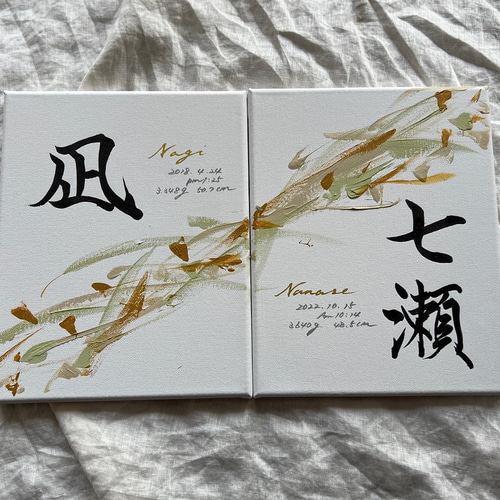 凪
Nagi
2018.4.24
pm1:25
3.048g 50.7cm
七瀬
Nanase
2022.10.15
Am10:14
3.640g 48.5cm